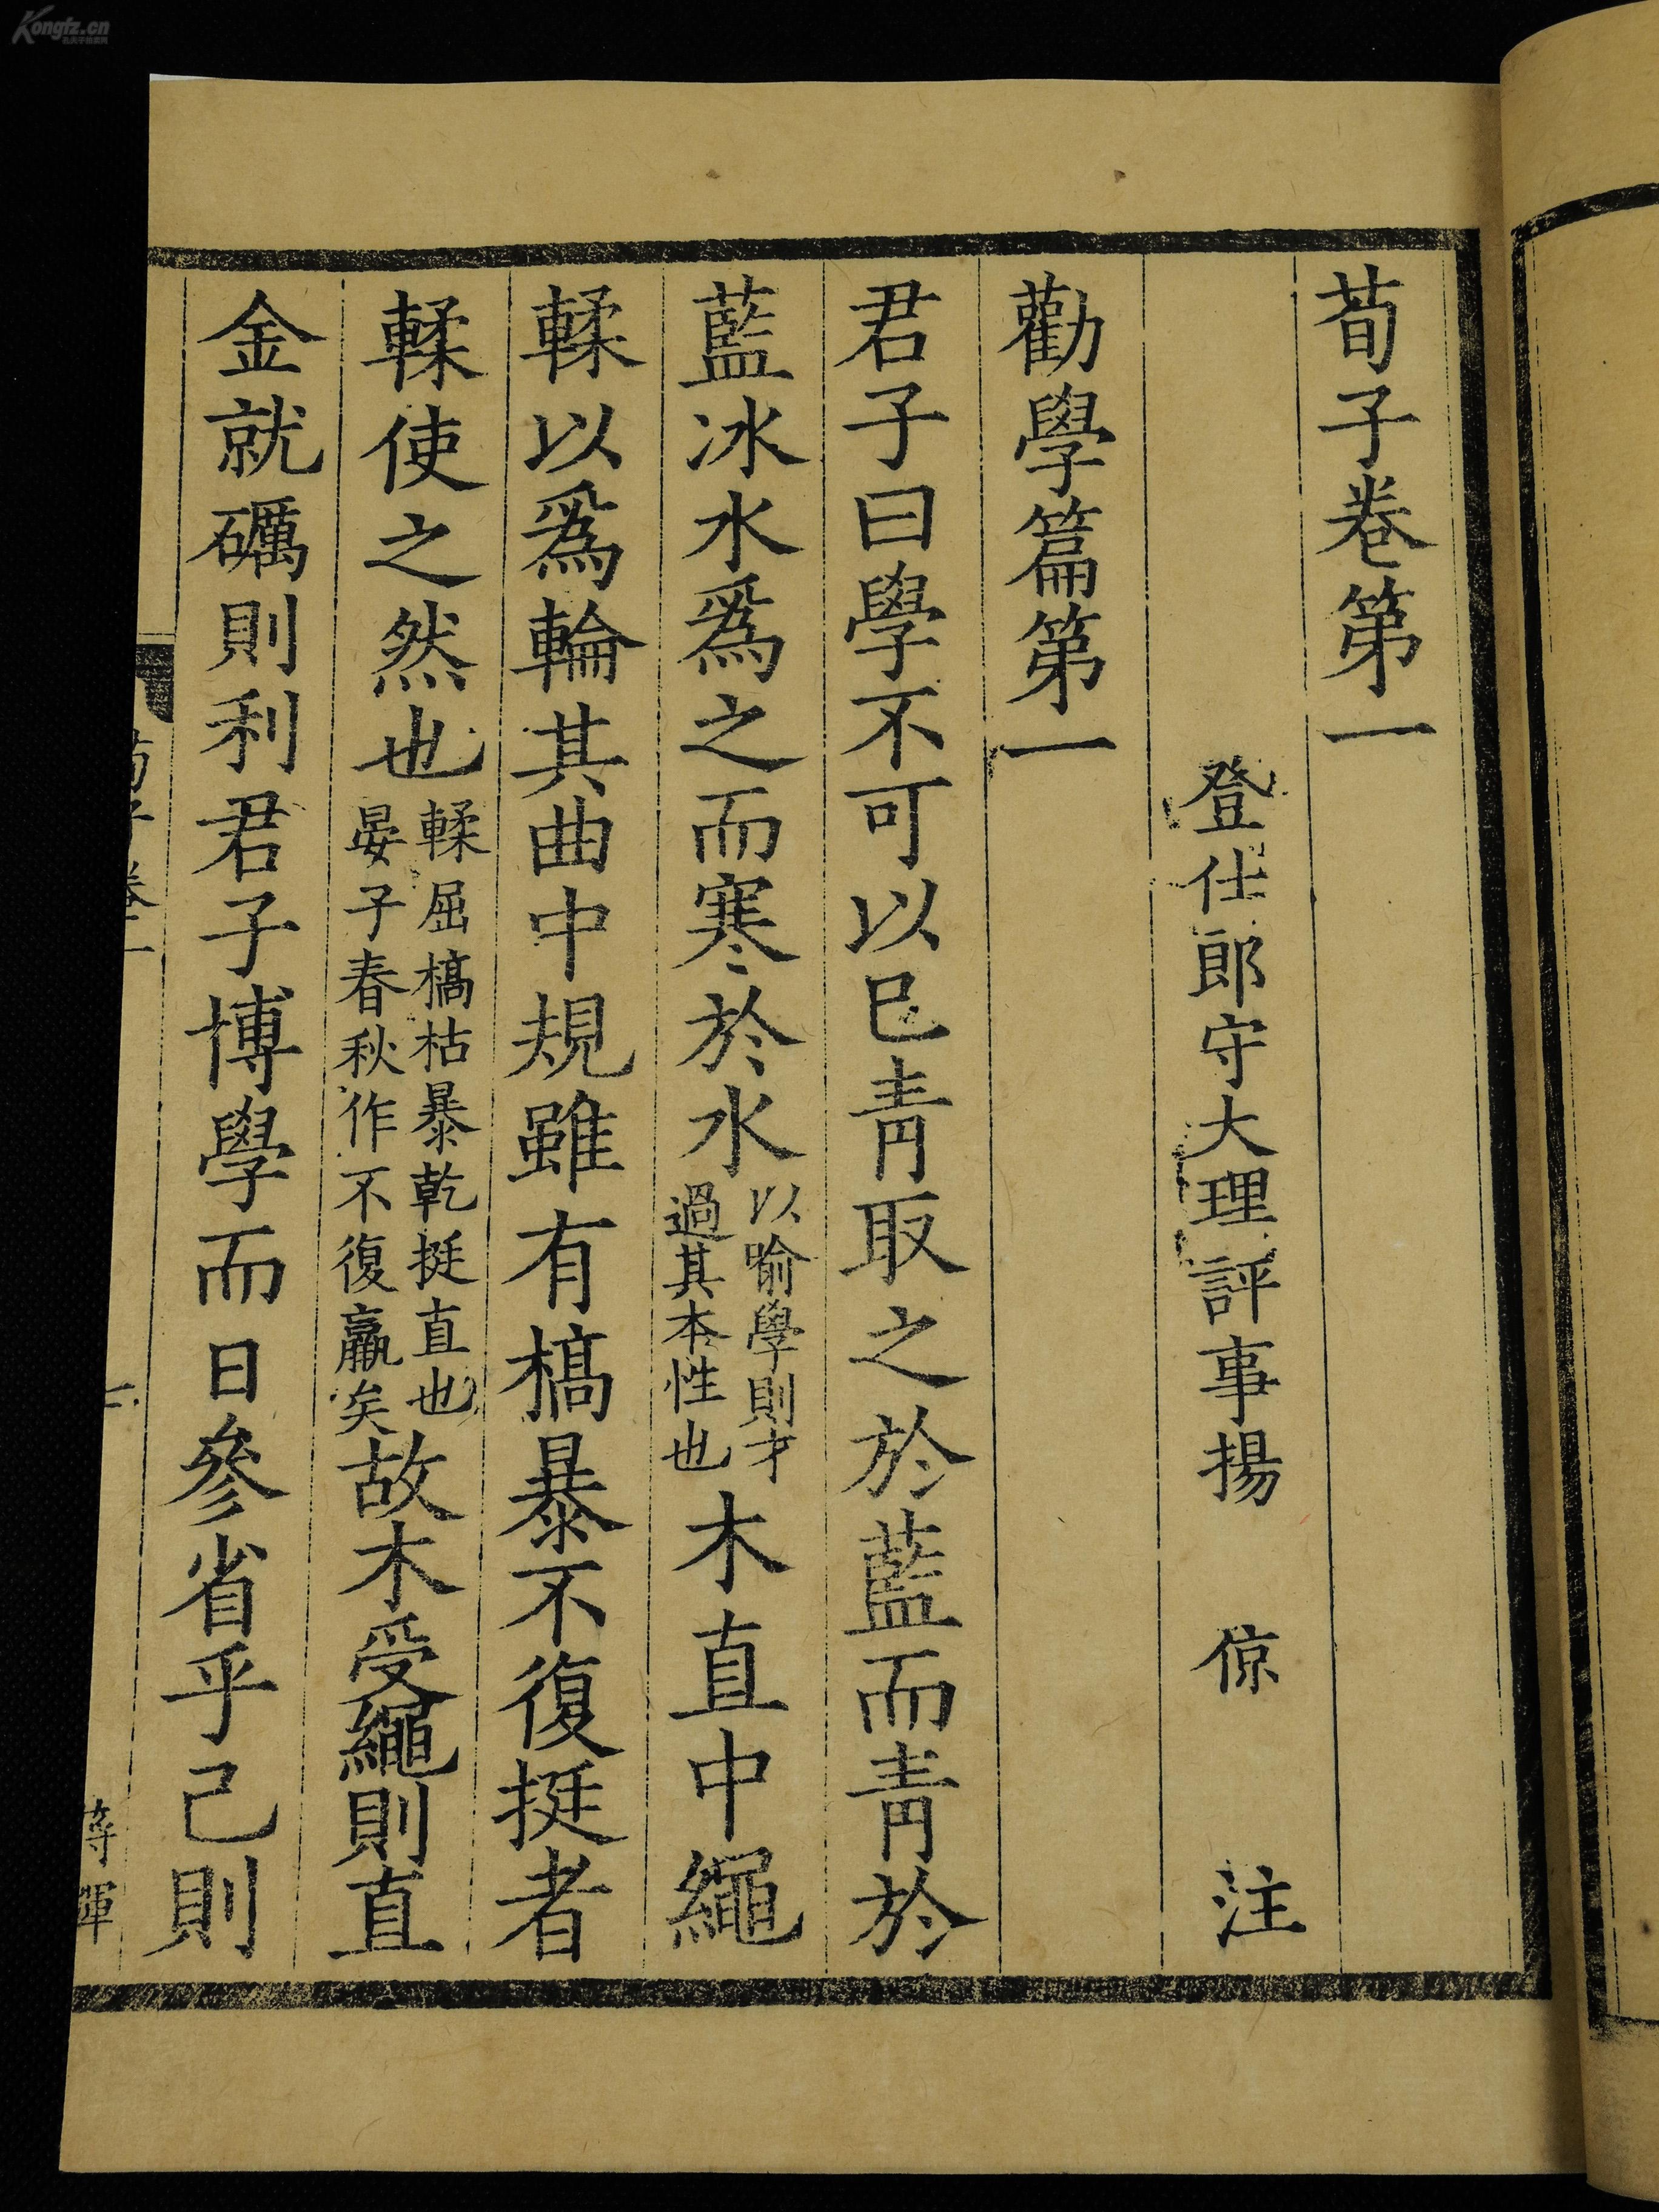 荀子卷第一
登仕郎守大理評事揚倞注
勸學篇第一
君子曰學不可以已青取之於藍而青於
藍冰水爲之而寒於水以喻學則才過其本性也木直中繩
輮以爲輪其曲中規雖有槁暴不復挺者
輮使之然也輮屈槁枯暴乾挺直也晏子春秋作不復贏矣故木受繩則直
金就礪則利君子博學而日參省乎己則
荀子卷一
一
Kongfz.cn